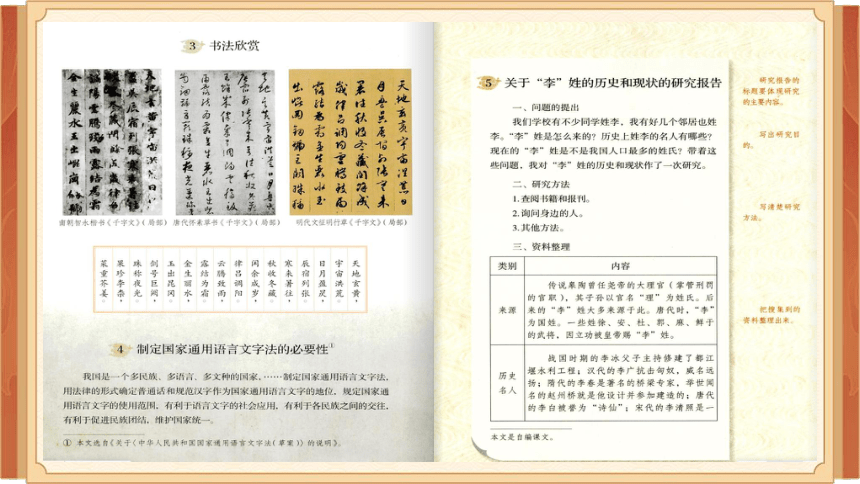 3 书法欣赏
南朝智永楷书《千字文》(局部)
唐代怀素草书《千字文》(局部)
明代文征明行草《千字文》(局部)
天地玄黄，
宇宙洪荒。
日月盈昃，
辰宿列张。
寒来暑往，
秋收冬藏。
闰余成岁，
律吕调阳。
云腾致雨，
露结为霜。
金生丽水，
玉出昆冈。
剑号巨阙，
珠称夜光。
果珍李柰，
菜重芥姜。
4 制定国家通用语言文字法的必要性①
我国是一个多民族、多语言、多文种的国家，……制定国家通用语言文字法，
用法律的形式确定普通话和规范汉字作为国家通用语言文字的地位，规定国家通
用语言文字的使用范围，有利于语言文字的社会应用，有利于各民族之间的交往，
有利于促进民族团结，维护国家统一。
① 本文选自《关于〈中华人民共和国国家通用语言文字法(草案)〉的说明》。
5 关于“李”姓的历史和现状的研究报告
一、问题的提出
我们学校有不少同学姓李，我有好几个邻居也姓
李。“李”姓是怎么来的？历史上姓李的名人有哪些？
现在的“李”姓是不是我国人口最多的姓氏？带着这
些问题，我对“李”姓的历史和现状作了一次研究。
二、研究方法
1.查阅书籍和报刊。
2.询问身边的人。
3.其他方法。
三、资料整理
类别 内容
来源
传说皋陶曾任尧帝的大理官（掌管刑罚
的官职），其子孙以官名“理”为姓氏。后
来的“李”姓大多来源于此。唐代时，“李”
为国姓。一些姓徐、安、杜、郭、麻、鲜于
的武将，因立功被皇帝赐“李”姓。
历史
名人
战国时期的李冰父子主持修建了都江
堰水利工程；汉代的李广抗击匈奴，威名远
扬；隋代的李春是著名的桥梁专家，举世闻
名的赵州桥就是他设计并参加建造的；唐代
的李白被誉为“诗仙”；宋代的李清照是一
本文是自编课文。
研究报告的
标题要体现研究
的主要内容。
写出研究目
的。
写清楚研究
方法。
把搜集到的
资料整理出来。